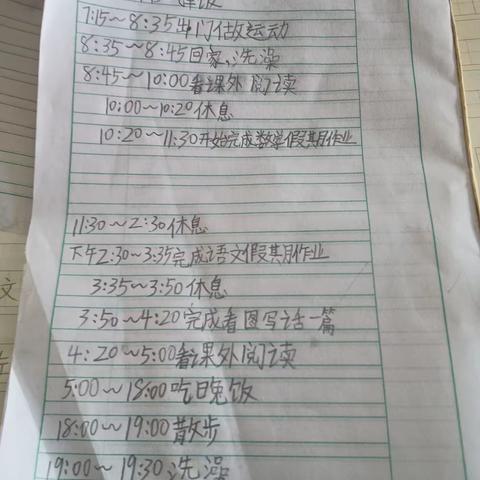 7:15~8:35出门做运动
8:35~8:45回家,洗澡
8:45~10:00看课外阅读
10:00~10:20休息
10:20~11:30开始完成数学假期作业
11:30~2:30休息
下午2:30~3:35完成语文假期作业
3:35~3:50休息
3:50~4:20完成看图写话一篇
4:20~5:00看课外阅读
5:00~18:00吃晚饭
18:00~19:00散步
19:00~19:30洗澡
文